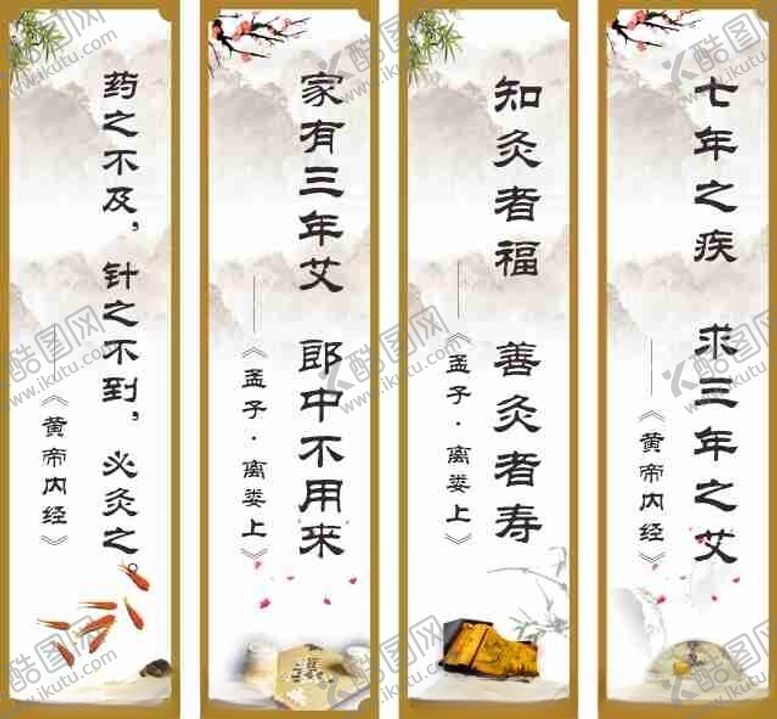 药之不及，针之不到，必灸之。
——《黄帝内经》
家有三年艾 郎中不用来
——《孟子·离娄上》
知灸者福 善灸者寿
——《孟子·离娄上》
七年之疾 求三年之艾
——《黄帝内经》
酷图网
www.ikutu.com